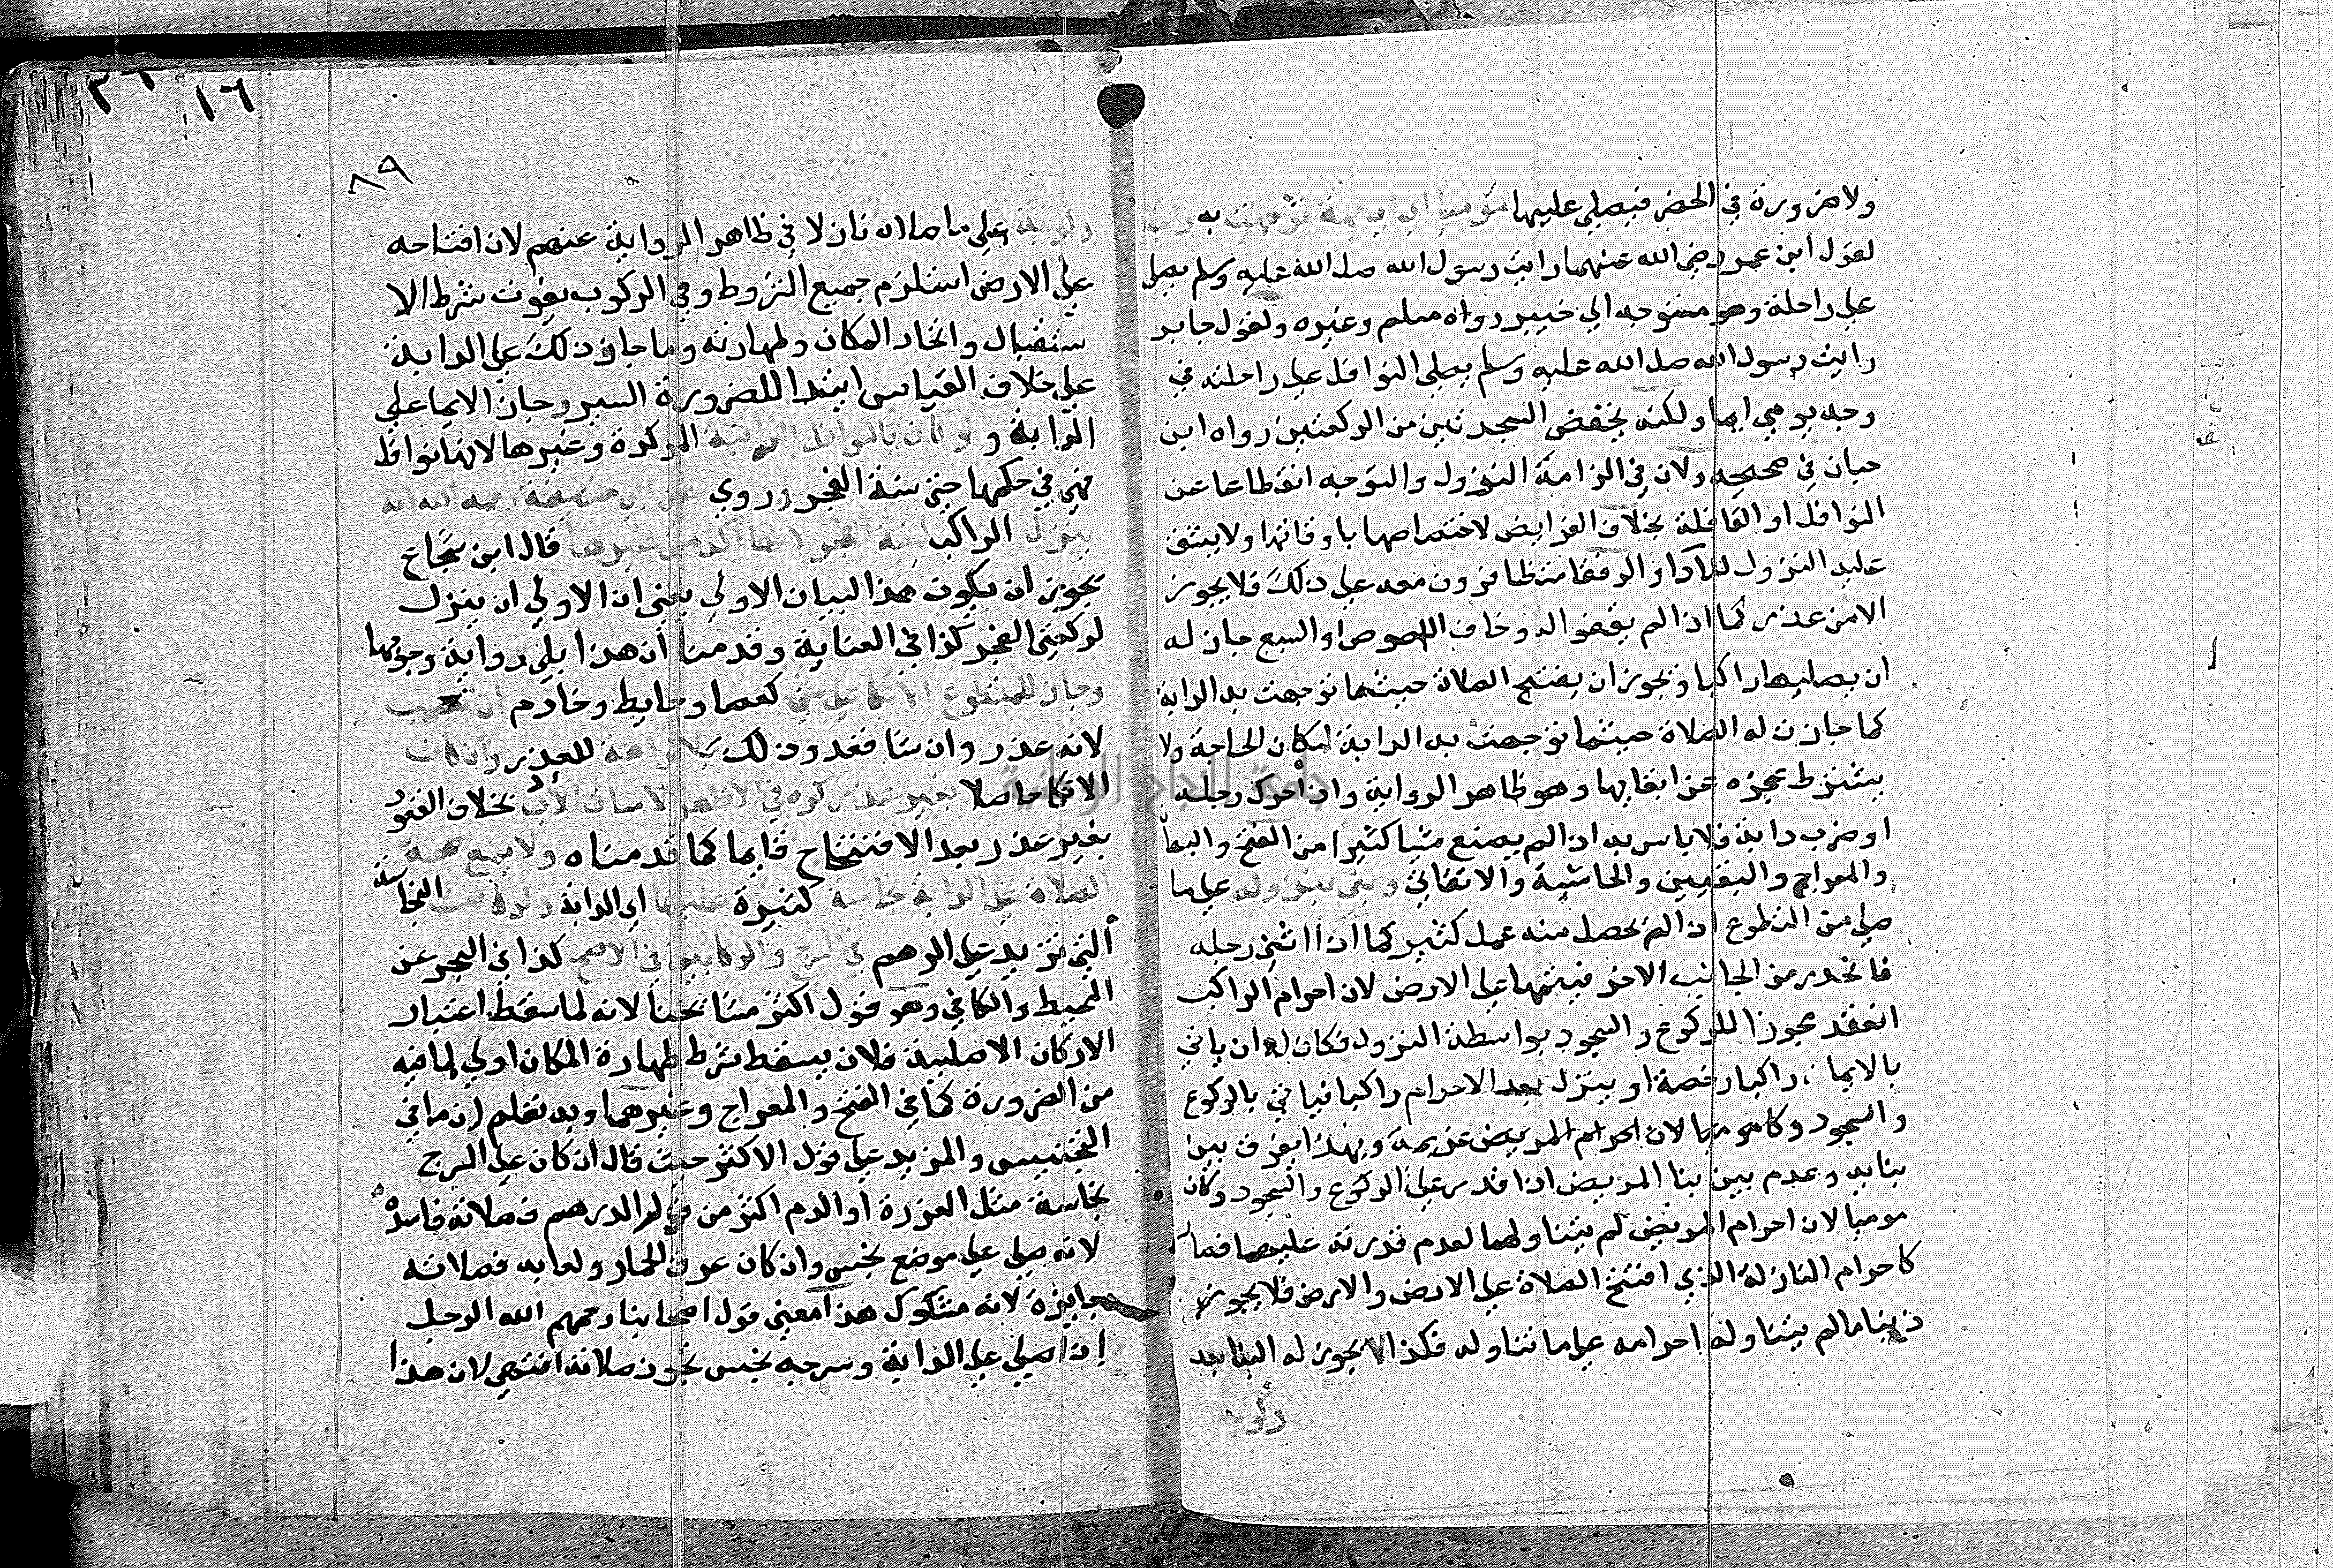 ولا ضرورة في الحضر فيصلي عليها موميا الى اي جهة توجهت به دابته
لقول ابن عمر رضي الله عنهما رايت رسول الله صلى الله عليه وسلم يصلي
على راحلة وهو متوجه الي خيبر رواه مسلم وغيره ولقول جابر
رايت رسول الله صلى الله عليه وسلم يصلي النوافل على راحلته في
وجه يومي ايما ولكنه يخفض السجدتين من الركعتين رواه ابن
حبان في صحيحه ولان في الزامه النزول والتوجه انقطاعا عن
النوافل او القافلة بخلاف الفرايض لاختصاصها باوقاتها ولا يشق
عليه النزول للاداء والرفقا متظافرون معه على ذلك فلا يجوز
الا من عذر كما اذا لم يقف له وخاف اللصوص او السبع جاز له
ان يصليها راكبا ويجوز ان يفتتح الصلاة حيثما توجهت به الدابة
كما جازت له الصلاة حيثما توجهت به الدابة لمكان الحاجة ولا
يشترط عجزه عن ايقافها وهو ظاهر الرواية واذا حرك رجله
او ضرب دابة فلا باس به اذا لم يصنع شيا كثيرا من الفتح
والمعراج والحاشية والاتقاني وبني بنزوله على ما
صلى من التطوع اذا لم يحصل منه عمل كثير كما اذا اثني رجله
فانحدر من الجانب الاخر فيتمها على الارض لان احرام الراكب
انعقد مجوزا للركوع والسجود بواسطة النزول فكان له ان ياتي
بالايماء راكبا رخصة او ينزل بعد الاحرام راكبا فياتي بالركوع
والسجود وكان موميا لان احرام المريض عزيمة وبهذا يفرق بين
بنايه وعدم بين بنا المريض اذا قدر على الركوع والسجود وكان
موميا لان احرام المريض لم يتناولهما لعدم قدرته عليهما
كاحرام النازلة الذي افتتح الصلاة على الارض والارض فلا يجوز
بنا ما لم يتناوله احرامه على ما تناوله فكذا لا يجوز له البنا بعد
ركوبه
١٦
٨٩
ركوبه على ما صلاه نازلا في ظاهر الرواية عنهم لان افتتاحه
على الارض استلزم جميع الشروط وفي الركوب يفوت شرط الا
ستقبال واتحاد المكان وطهارته وما جاز ذلك على الدابة
على خلاف القياس ابتدا للضرورة السير وجاز الايما على
الدابة ولو كان بالنوافل الراتبة المؤكدة وغيرها لانها نوافل
فهي في حكمها حتى سنة الفجر وروي عن ابي حنيفة رحمه الله انه
ينزل الراكب لسنة الفجر لانها اكد من غيرها قال ابن شجاع
يجوز ان يكون هذا لبيان الاولي يعني ان الاولي ان ينزل
لركعتي الفجر كذا في العناية وقدمنا ان هذا على رواية وجوبها
وجاز للمتطوع الاتكا على شي كعصا وحايط وخادم ان تعب
لانه عذر وان شا قعد وذلك بلا كراهة للعذر وان كان
الاتكا حاصلا بغير عذر كره في الاظهر لاساة الادب بخلاف القعود
بغير عذر بعد الافتتاح قايما كما قدمناه ولا يمنع صحة
الصلاة على الدابة نجاسة كثيرة عليها اي الدابة ولو كانت النجاسة
التي تزيد على الدرهم في السرج والركابين في الاصح كذا في البحر عن
المحيط والكافي وهو قول اكثر مشايخنا لانه لما سقط اعتبار
الاركان الاصلية فلان يسقط شرط طهارة المكان اولي لما فيه
من الضرورة كما في الفتح والمعراج وغيرهما وبه تعلم ان ما في
التجنيس والمزيد على قول الاكثر حيث قال ان كان على السرج
نجاسة مثل العذرة او الدم اكثر من قدر الدرهم فصلاته فاسدة
لانه صلى على موضع نجس وان كان عرق الحمار ولعابه فصلاته
جايزة لانه مشكوك هذا معنى قول اصحابنا رحمهم الله الرجل
اذا صلى على الدابة وسرجه نجس تجوز صلاته انتهي لان هذا